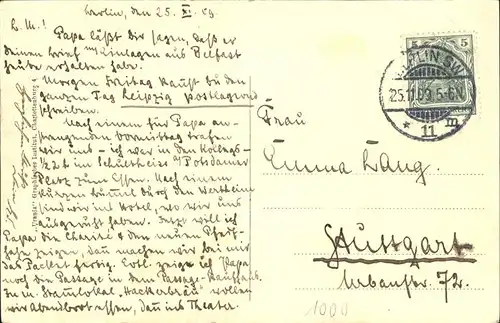 Berlin, den 25. XI. 09.
L. M.!
Papa läßt dir sagen, daß er
deinen Brief m/Einlagen aus Belfast
heute erhalten habe.
Morgen Freitag kannst du den
ganzen Tag Leipzig postlagernd
schreiben.
Nach einem für Papa an-
strengenden Vormittag trafen
wir uns - ich war in den Kollegs -
½2 h im Schultheiss a/ Potsdamer
Platz zum Essen. Nach einem
kurzen Bummel durch den Wertheim
sind wir im Hotel, wo wir uns
ausgeruht haben. Jetzt will ich
Papa die Charité & den neuen
zeigen, dann machen wir bei mir
das Packet fertig. Evtl. zeige ich Papa
noch die Passage in dem Passage-Kaufhaus.
In m. Stammlokal "Hackerbräu" wollen
wir Abendbrot essen, dann ins Theater.
Graphisches Institut, Charlottenburg 4
5 5
BERLIN SW
25.11.09.5-6N
* 11 m
Frau
Emma Lang.
Stuttgart
Urbanstr. 72.
1000